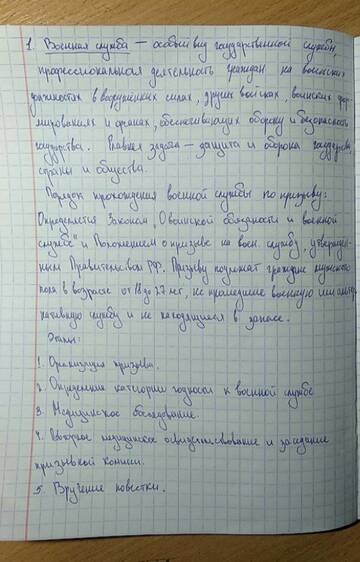 1. Военная служба – особый вид государственной службы,
профессиональная деятельность граждан на воинских
должностях в вооружённых силах, других войсках, воинских фор
мированиях и органах, обеспечивающих оборону и безопасность
государства. Главная задача – защита и оборона государства,
страны и общества.
Порядок прохождения военной службы по призыву:
Определяется Законом „О воинской обязаности и военной
службе" и Положением о призыве на воен. службу, утвержден-
ным Правительством РФ. Призыву подлежат граждане мужского
пола в возрасте от 18 до 27 лет, не прошедшие военную или альтер
нативную службу и не находящиеся в запасе.
Этапы:
1. Организация призыва.
2. Определение категории годности к военной службе
3. Медицинское обследование.
4. Повторное медицинское освидетельствование и заседание
призывной комисии.
5. Вручение повестки.